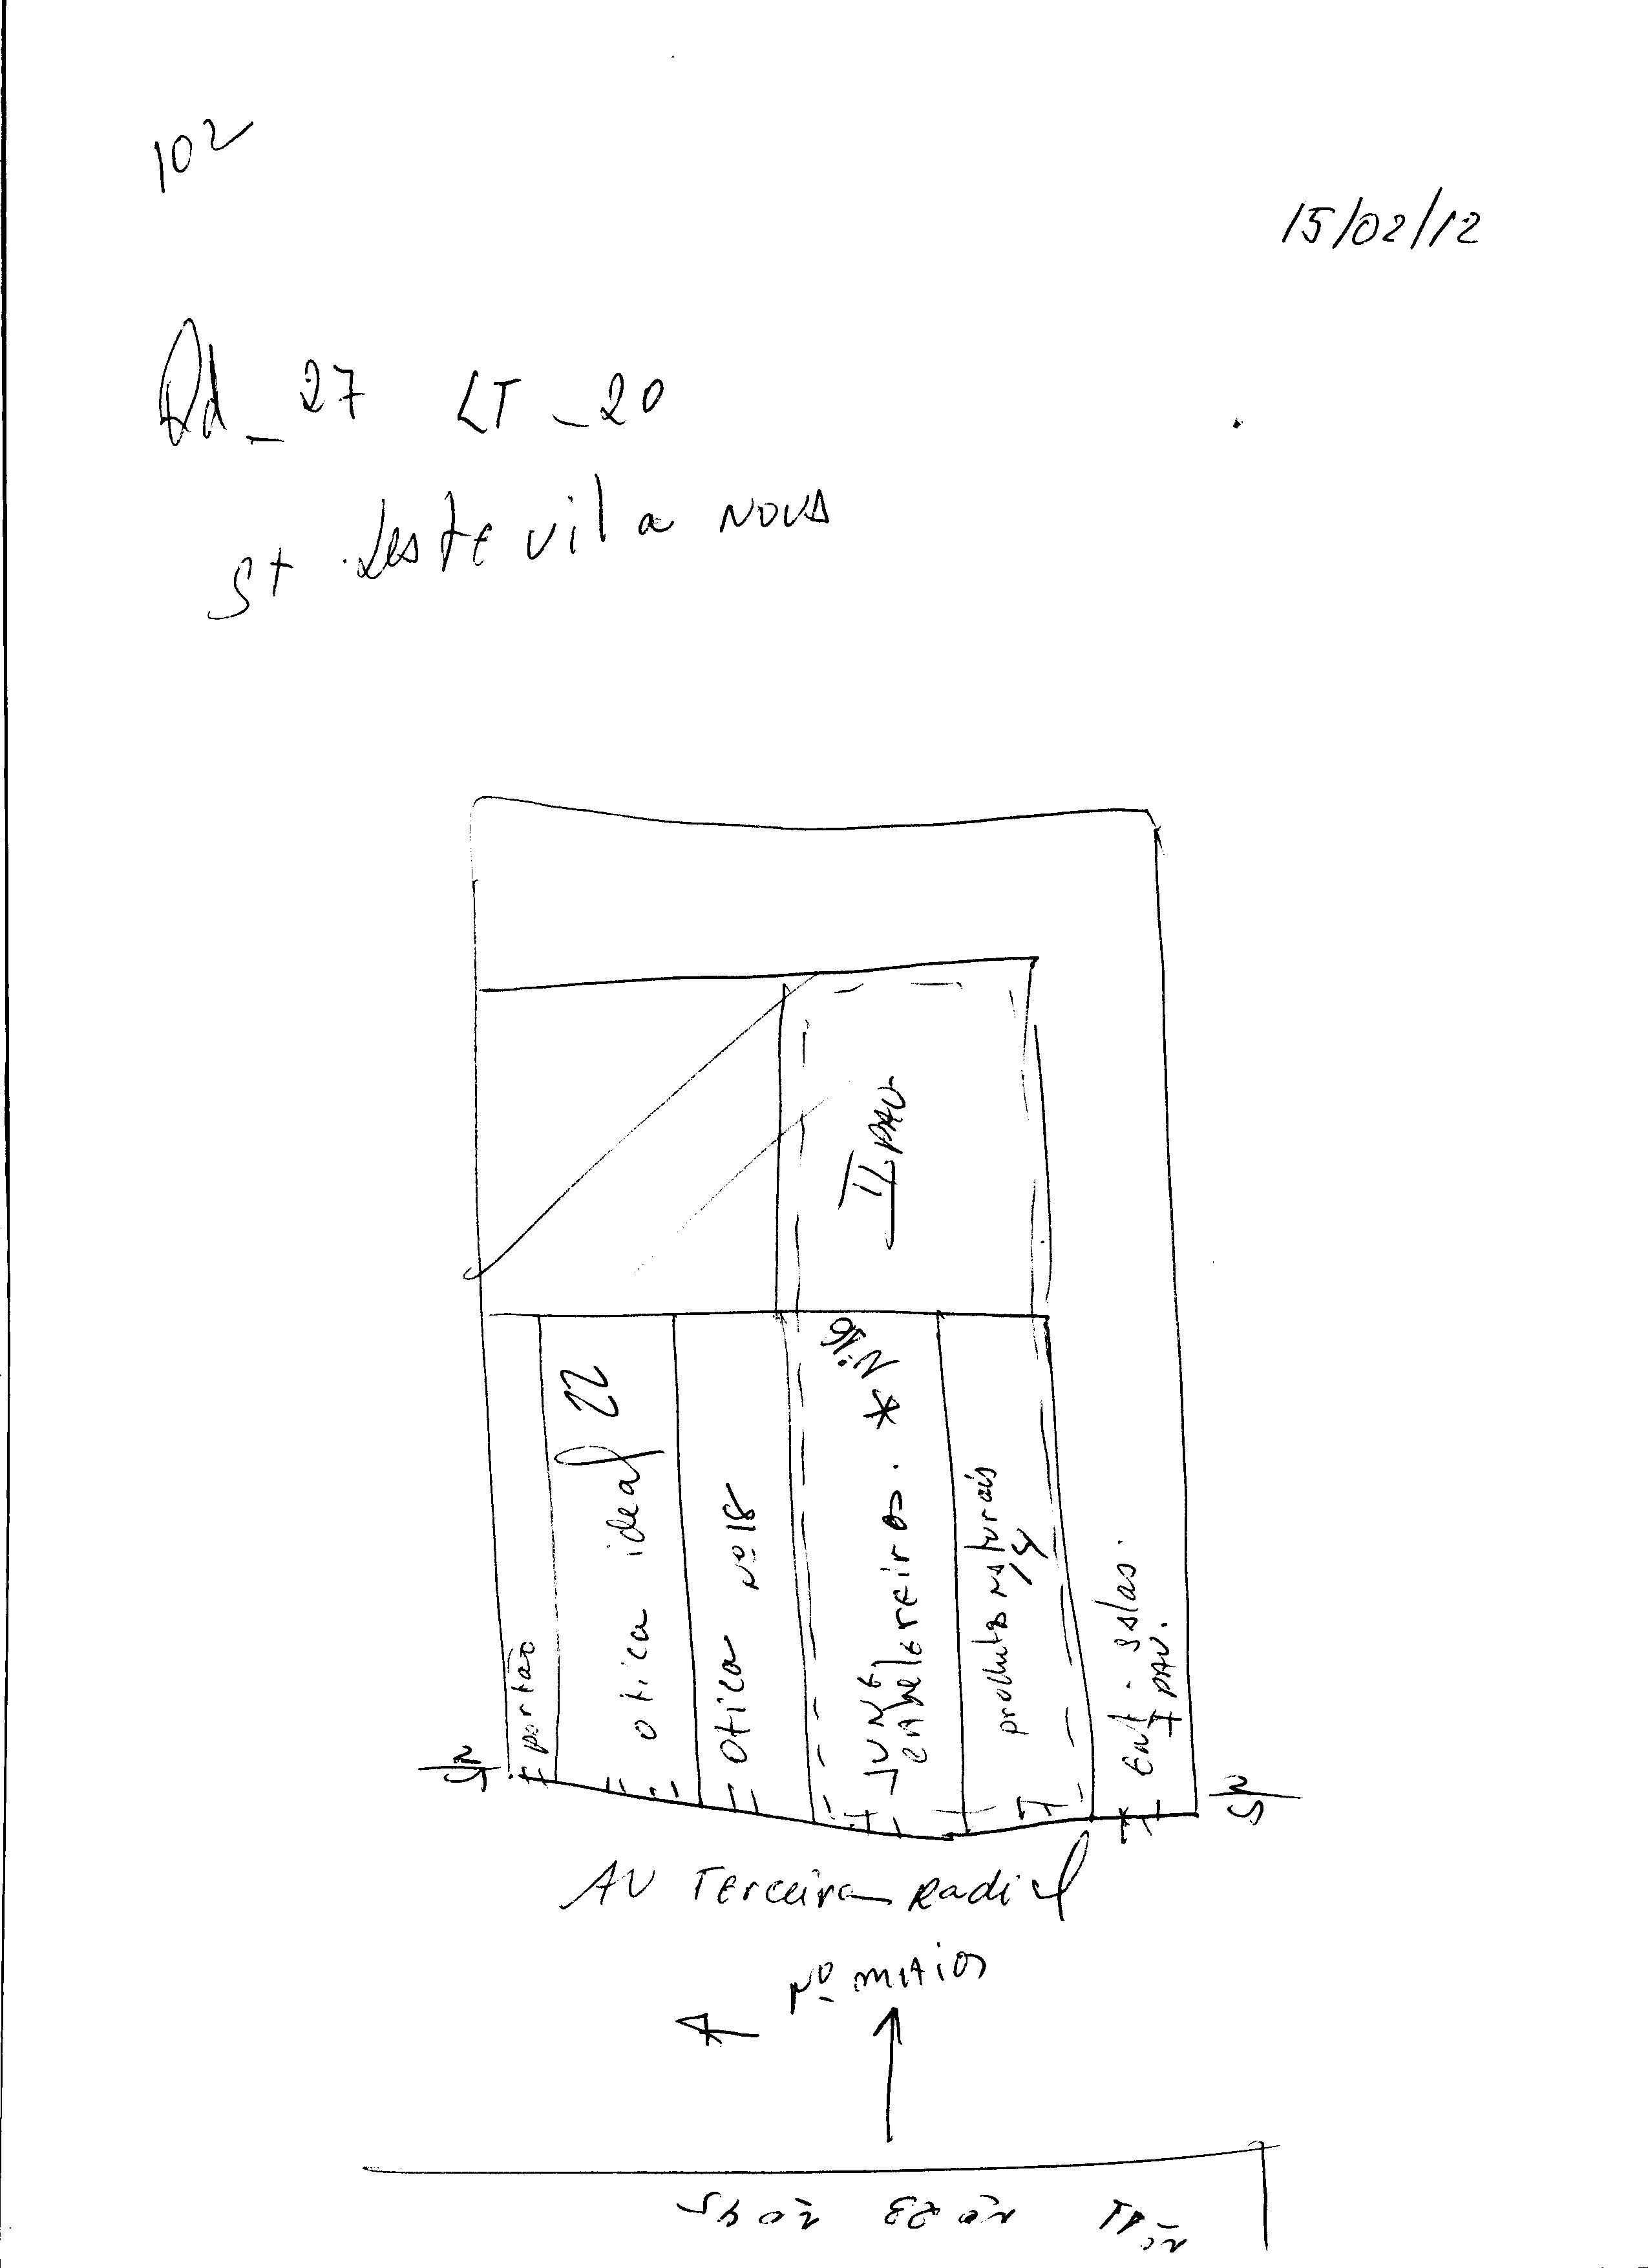 102
15/02/12
Qd - 27 LT - 20
St. Leste vila Nova
II PAV
portão
otica ideal 22
Otica Nº 18
* Nº 16
produtos naturais
14
Ent. salas.
I PAV.
S/N
S/N
AV Terceira Radial
Nº maior